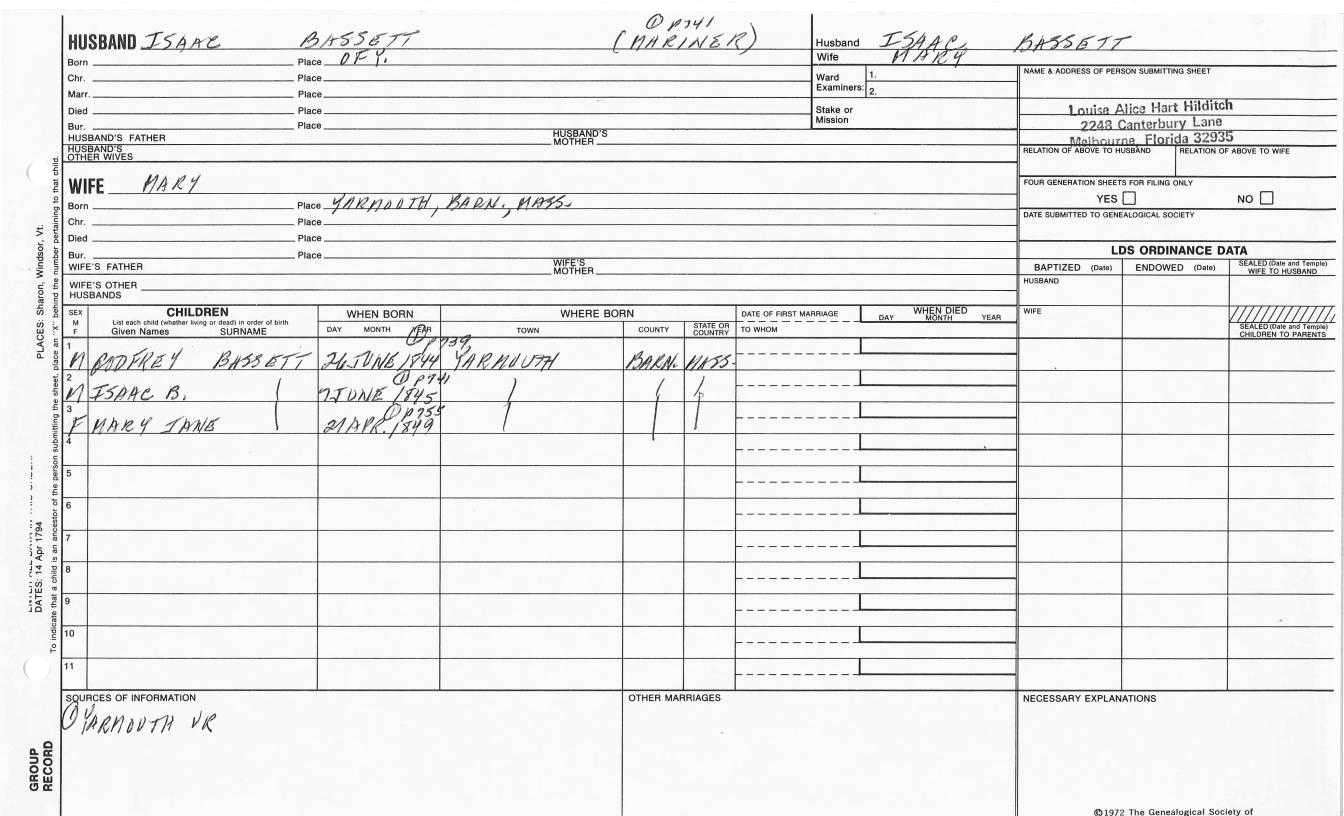 ① P741
HUSBAND ISAAC BASSETT (MARINER)
Born Place OF Y.
Chr. Place
Marr. Place
Died Place
Bur. Place
HUSBAND'S FATHER HUSBAND'S MOTHER
HUSBAND'S OTHER WIVES
WIFE MARY
Born Place YARMOUTH, BARN., MASS.
Chr. Place
Died Place
Bur. Place
WIFE'S FATHER WIFE'S MOTHER
WIFE'S OTHER HUSBANDS
Husband ISAAC BASSETT
Wife MARY
Ward Examiners: 1. 2.
Stake or Mission
NAME & ADDRESS OF PERSON SUBMITTING SHEET
Louise Alice Hart Hilditch
2248 Canterbury Lane
Melbourne, Florida 32935
RELATION OF ABOVE TO HUSBAND RELATION OF ABOVE TO WIFE
FOUR GENERATION SHEETS FOR FILING ONLY
YES NO
DATE SUBMITTED TO GENEALOGICAL SOCIETY
LDS ORDINANCE DATA
BAPTIZED (Date) ENDOWED (Date) SEALED (Date and Temple) WIFE TO HUSBAND
HUSBAND
WIFE
SEALED (Date and Temple) CHILDREN TO PARENTS
SEX M F
CHILDREN
List each child (whether living or dead) in order of birth
Given Names SURNAME
WHEN BORN
DAY MONTH YEAR
WHERE BORN
TOWN COUNTY STATE OR COUNTRY
DATE OF FIRST MARRIAGE
TO WHOM
WHEN DIED
DAY MONTH YEAR
① P739,
1 M GODFREY BASSETT 26 JUNE 1844 YARMOUTH BARN. MASS.
① P741
2 M ISAAC B. 7 JUNE 1845
① P755
3 F MARY JANE 21 APR. 1849
4
5
6
7
8
9
10
11
SOURCES OF INFORMATION
① YARMOUTH VR
OTHER MARRIAGES
NECESSARY EXPLANATIONS
©1972 The Genealogical Society of
PLACES: Sharon, Windsor, Vt.
DATES: 14 Apr 1794
To indicate that a child is an ancestor of the person submitting the sheet, place an "X" behind the number pertaining to that child.
GROUP RECORD